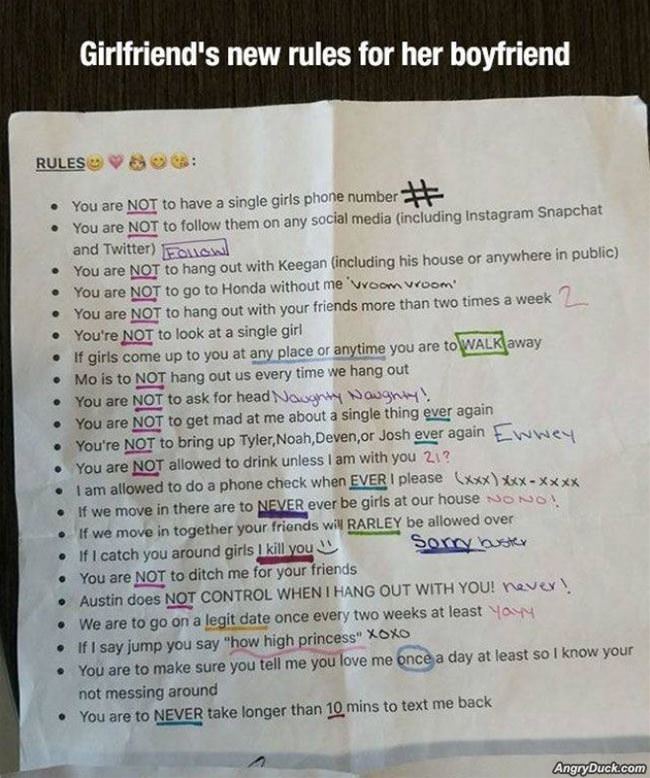 Girlfriend's new rules for her boyfriend
RULES😊💗👸😊😘:
• You are NOT to have a single girls phone number #
• You are NOT to follow them on any social media (including Instagram Snapchat
and Twitter) Follow
• You are NOT to hang out with Keegan (including his house or anywhere in public)
• You are NOT to go to Honda without me 'vroom vroom'
• You are NOT to hang out with your friends more than two times a week 2
• You're NOT to look at a single girl
• If girls come up to you at any place or anytime you are to WALK away
• Mo is to NOT hang out us every time we hang out
• You are NOT to ask for head Naughty Naughty!
• You are NOT to get mad at me about a single thing ever again
• You're NOT to bring up Tyler,Noah,Deven,or Josh ever again Ewwey
• You are NOT allowed to drink unless I am with you 21?
• I am allowed to do a phone check when EVER I please (xxx) xxx-xxxx
• If we move in there are to NEVER ever be girls at our house NO NO!
• If we move in together your friends will RARLEY be allowed over
• If I catch you around girls I kill you Sorry buster
• You are NOT to ditch me for your friends
• Austin does NOT CONTROL WHEN I HANG OUT WITH YOU! never!
• We are to go on a legit date once every two weeks at least Yayy
• If I say jump you say "how high princess" XOXO
• You are to make sure you tell me you love me once a day at least so I know your
not messing around
• You are to NEVER take longer than 10 mins to text me back
AngryDuck.com